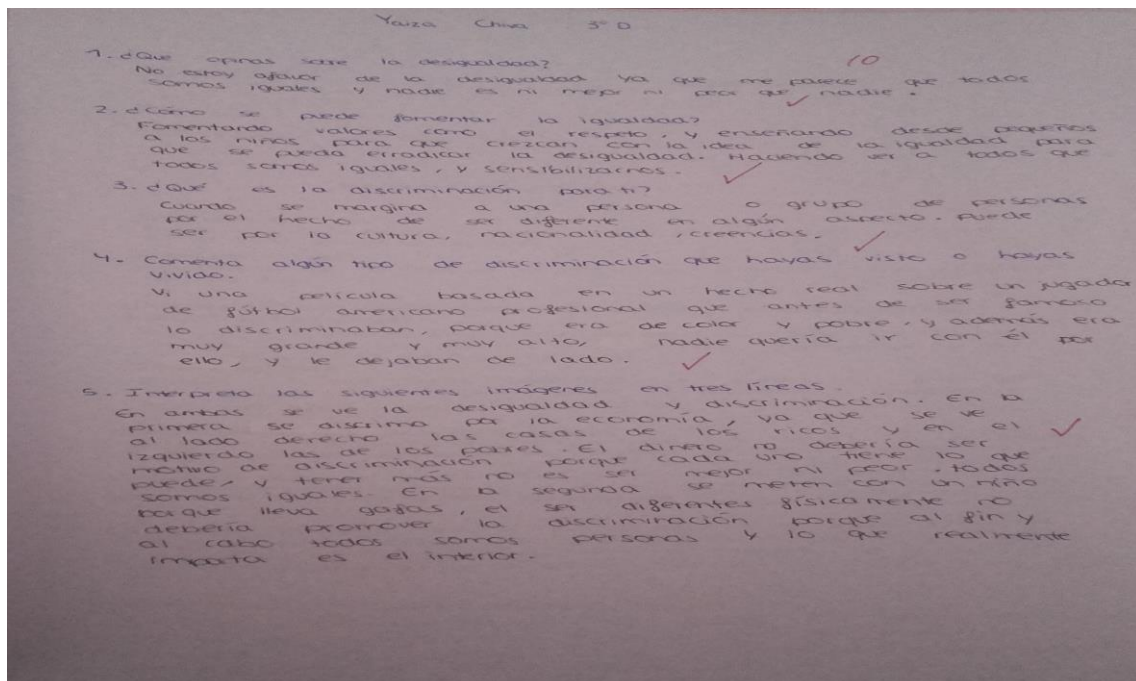 Yaiza Chiva 3º D
10
1. ¿Que opinas sobre la desigualdad?
No estoy afavor de la desigualdad ya que me parece que todos
somos iguales y nadie es ni mejor ni peor que nadie.
2. ¿Cómo se puede fomentar la igualdad?
Fomentando valores como el respeto, y enseñando desde pequeños
a los niños para que crezcan con la idea de la igualdad para
que se pueda erradicar la desigualdad. Haciendo ver a todos que
todos somos iguales, y sensibilizarnos.
3. ¿Qué es la discriminación para ti?
Cuando se margina a una persona o grupo de personas
por el hecho de ser diferente en algún aspecto. Puede
ser por la cultura, nacionalidad, creencias.
4. Comenta algún tipo de discriminación que hayas visto o hayas
vivido.
Vi una película basada en un hecho real sobre un jugador
de fútbol americano profesional que antes de ser famoso
lo discriminaban, porque era de color y pobre, y además era
muy grande y muy alto, nadie quería ir con él por
ello, y le dejaban de lado.
5. Interpreta las siguientes imágenes en tres líneas.
En ambas se ve la desigualdad y discriminación. En la
primera se discrima por la economía, ya que se ve
al lado derecho las casas de los ricos y en el
izquierdo las de los pobres. El dinero no debería ser
motivo de discriminación porque cada uno tiene lo que
puede, y tener más no es ser mejor ni peor, todos
somos iguales. En la segunda se meten con un niño
porque lleva gafas, el ser diferentes físicamente no
debería promover la discriminación porque al fin y
al cabo todos somos personas y lo que realmente
importa es el interior.